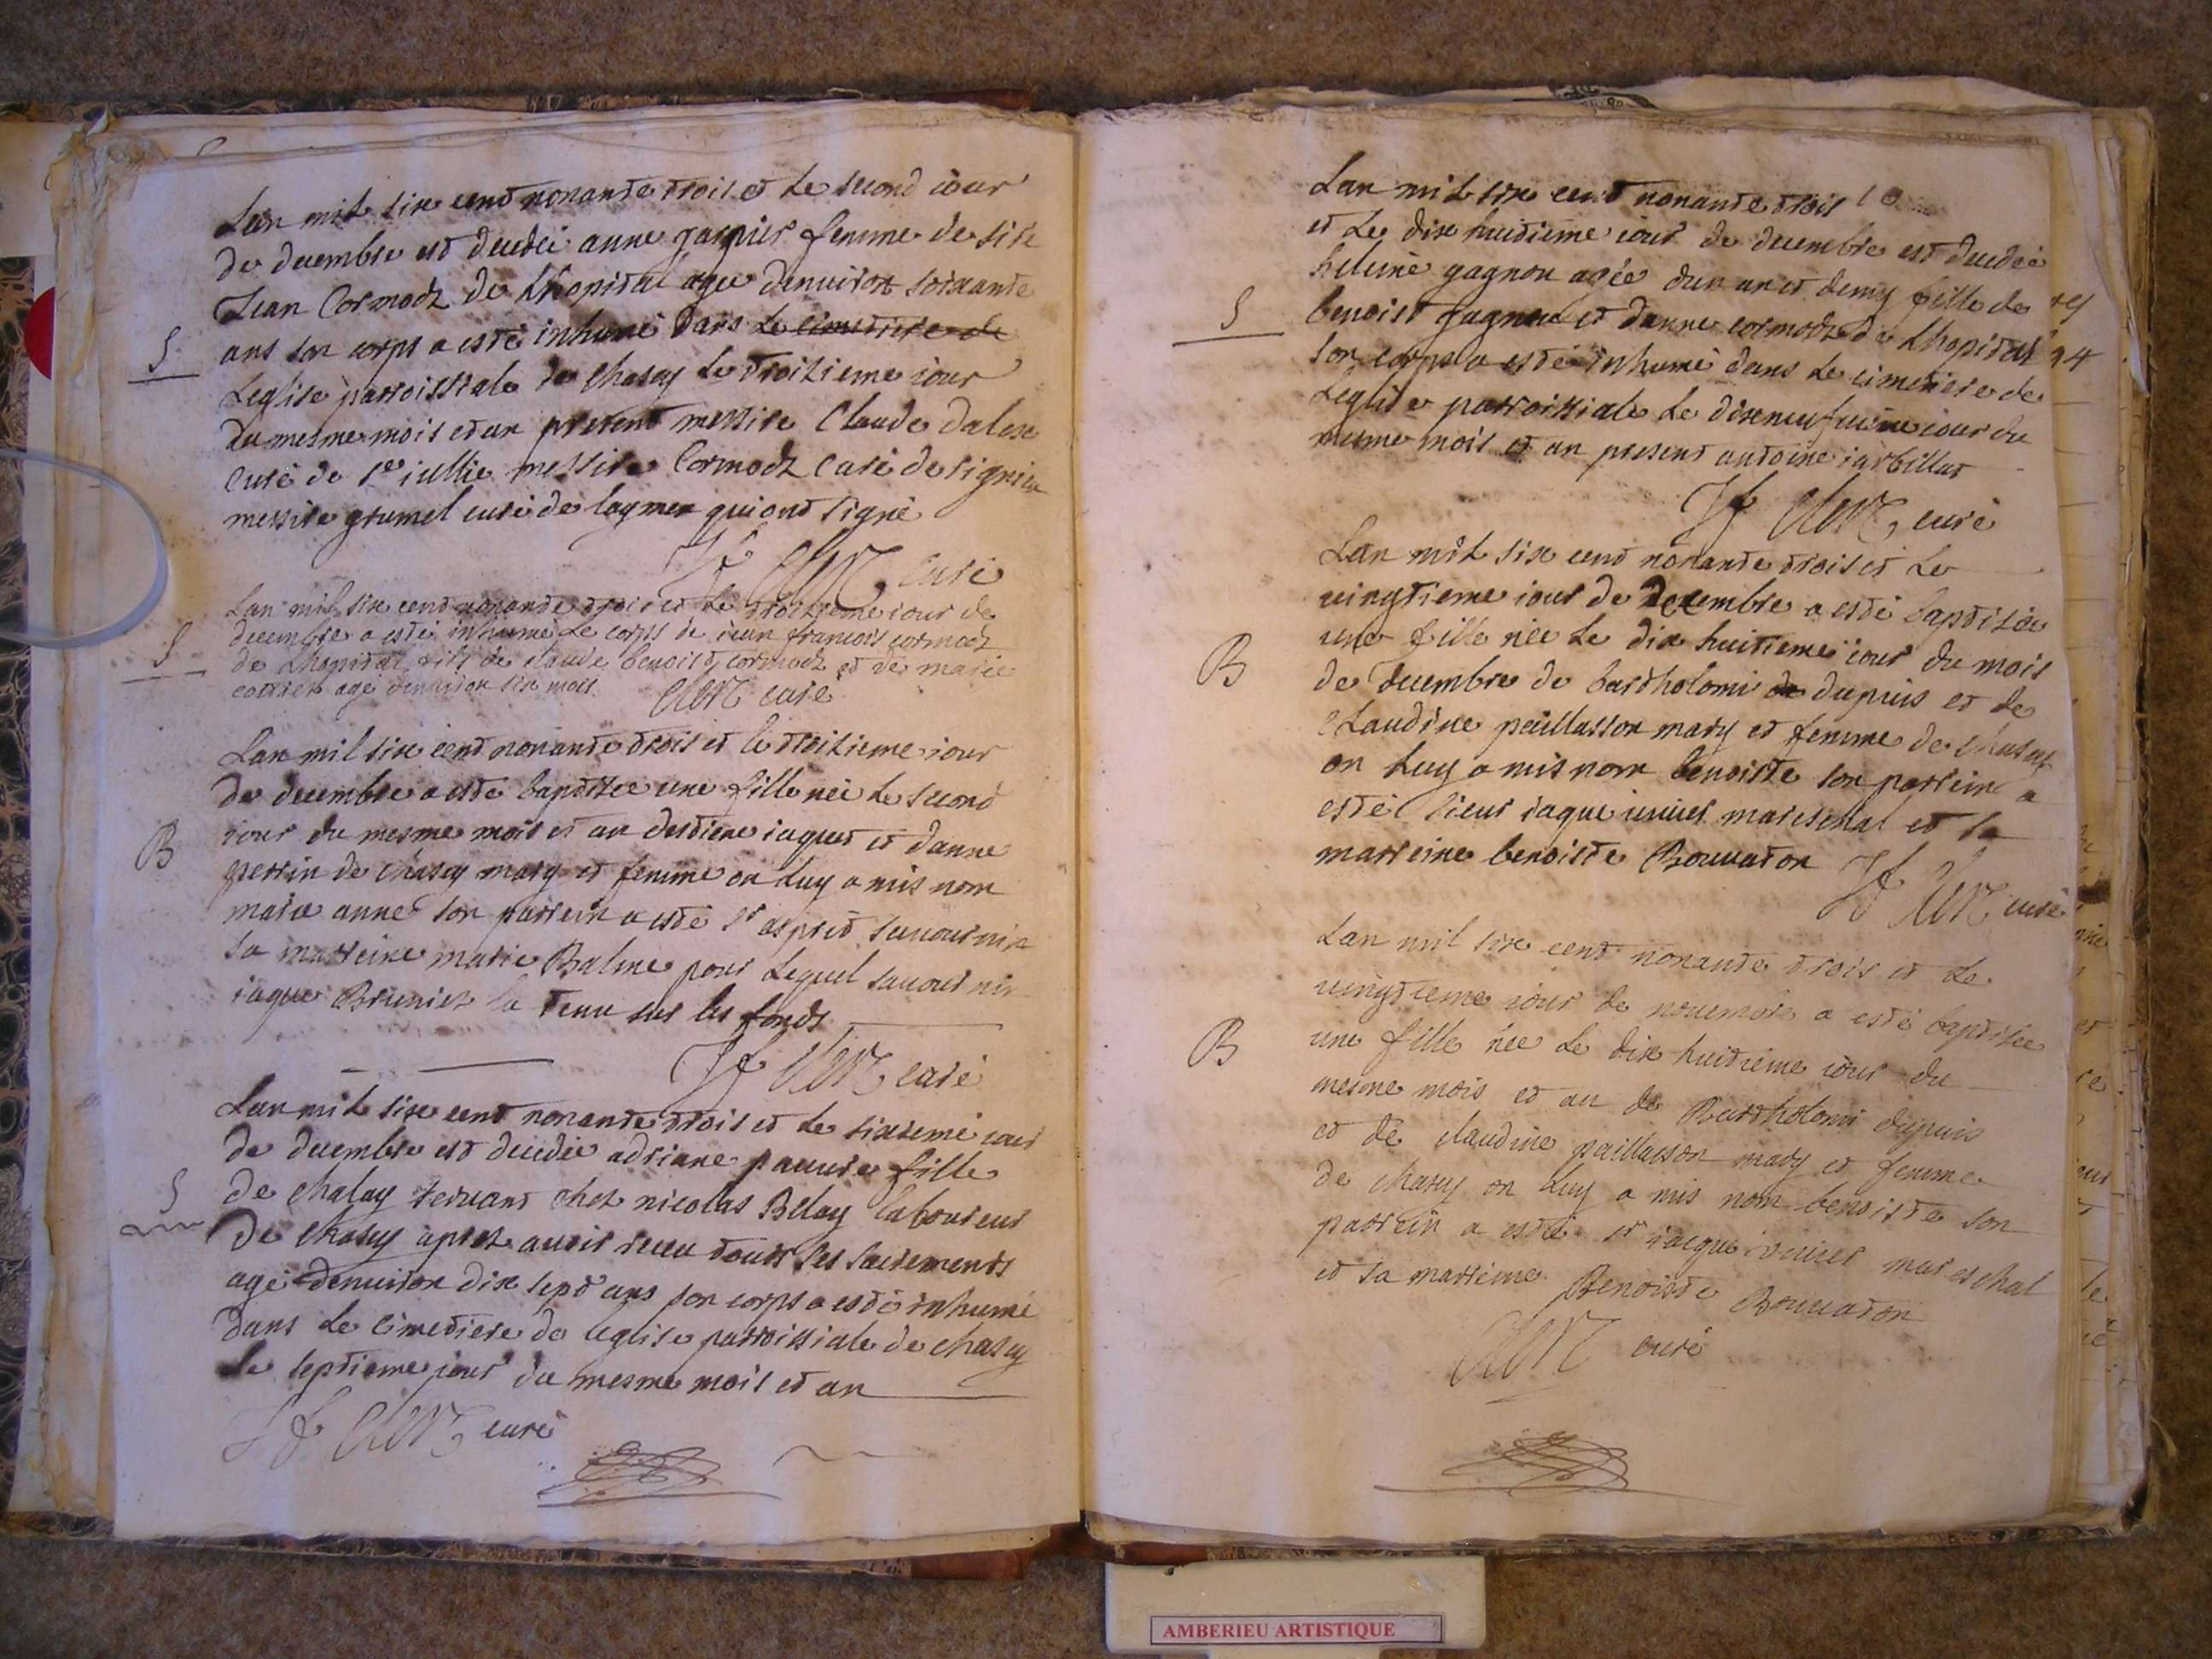 Lan mil six cent nonante trois et le second iour
de decembre est decedeé anne garnier femme de sire
Jean Cormodz de Lhopital agee denuiron soixante
S
ans son corps a esté inhumé dans Le cimetiere de
Leglise parroissiale de chasey Le troizieme iour
du mesme mois et an present messire Claude dalex
curé de st iullie messire Cormodz Curé de signieu
messire grumel curé de lagnieu qui ont signé
curé
Lan mil six cent nonante trois et Le troizieme iour de
decembre a esté inhumé Le corps de iean francois cormodz
S
de Lhopital fils de claude benoist cormodz et de marie
agé denuiron six mois curé
Lan mil six cent nonante trois et le troizieme iour
de decembre a esté baptizee une fille neé Le second
B
iour du mesme mois et an destiene iaquet et danne
perrin de chasey mary et femme on Luy a mis nom
marie anne son parrein a esté sr esprit sauournin
sa marreine marie Balme pour Lequel sauournin
iaque Brunier la tenu sur les fonds
curé
Lan mil six cent nonante trois et Le sixieme iour
de decembre est decedeé adriane pauure fille
S
de chalay seruant chez nicolas Belay laboureur
de chasey aprez auoir receu touts ses sacrements
agé denuiron dix sept ans son corps a esté inhumé
dans Le cimetiere de leglise parroissiale de chasey
le septieme iour du mesme mois et an
curé
Lan mil six cent nonante trois 10
et Le dix huitieme iour de decembre est decedeé
heleine gagnon ageé dun an et demy fille de
S
benoist gagnon et danne cormodz de Lhopital
son corps a esté inhumé dans Le cimetiere de
Leglise parroissiale Le dixneufuieme iour du
mesme mois et an present antoine iarbillat
curé
Lan mil six cent nonante trois et Le
uingtieme iour de Decembre a esté baptiseé
une fille neé Le dix huitieme iour du mois
B
de decembre de bartholomi de dupuis et de
claudine paillasson mary et femme de chasey
on Luy a mis nom benoiste son parrein a
esté sieur iaque iuuier mareschal et sa
marreine benoiste Bouuaton
curé
Lan mil six cent nonante trois et Le
uingtieme iour de nouembre a esté baptisee
B
une fille nee Le dix huitieme iour du
mesme mois et an de Bartholomi dupuis
et de claudine paillasson mary et femme
de chasey on Luy a mis nom benoiste son
parrein a esté sr iacque iuuier mareschal
et sa marreine Benoiste Bouuaton
curé
AMBERIEU ARTISTIQUE